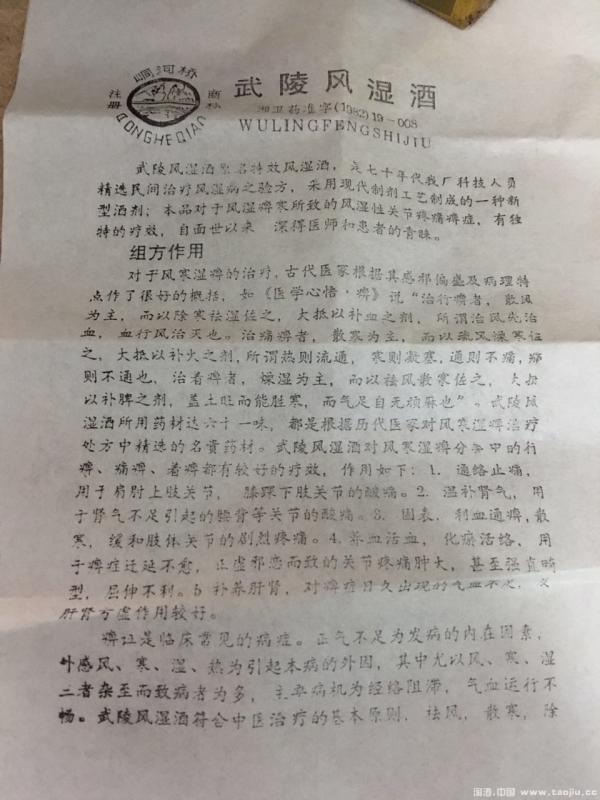 峒河桥
注册 商标
DONGHEQIAO
武陵风湿酒
湘卫药准字(1982)19-008
WULINGFENGSHIJIU
武陵风湿酒原名特效风湿酒，是七十年代我厂科技人员
精选民间治疗风湿病之验方，采用现代制剂工艺制成的一种新
型酒剂；本品对于风湿痹寒所致的风湿性关节疼痛痹症，有独
特的疗效，自面世以来 深得医师和患者的青睐。
组方作用
对于风寒湿痹的治疗，古代医家根据其感邪偏盛及病理特
点作了很好的概括，如《医学心悟·痹》说“治行痹者，散风
为主，而以除寒祛湿佐之，大抵以补血之剂，所谓治风先治
血，血行风治灭也。治痛痹者，散寒为主，而以疏风燥寒佐
之，大抵以补火之剂，所谓热则流通，寒则凝塞，通则不痛，痛
则不通也，治着痹者，燥湿为主，而以祛风散寒佐之，大抵
以补脾之剂，盖土旺而能胜寒，而气足自无顽麻也”。武陵风
湿酒所用药材达六十一味，都是根据历代医家对风寒湿痹治疗
处方中精选的名贵药材。武陵风湿酒对风寒湿痹分类中的行
痹、痛痹、着痹都有较好的疗效，作用如下：1. 通络止痛，
用于肩肘上肢关节，膝踝下肢关节的酸痛。2. 温补肾气，用
于肾气不足引起的腰背等关节的酸痛。3. 固表，利血通痹，散
寒，缓和肢体关节的剧烈疼痛。4. 养血活血，化瘀活络，用
于痹症迁延不愈，正虚邪恋而致的关节疼痛肿大，甚至强直畸
型，屈伸不利。5 补养肝肾，对痹症日久出现的气血不足，及
肝肾亏虚作用较好。
痹证是临床常见的病症。正气不足为发病的内在因素，
外感风、寒、湿、热为引起本病的外因，其中尤以风、寒、湿
三者杂至而致病者为多，主率病机为经络阻滞，气血运行不
畅。武陵风湿酒符合中医治疗的基本原则，祛风，散寒，除
淘酒.中国 www.taojiu.cc